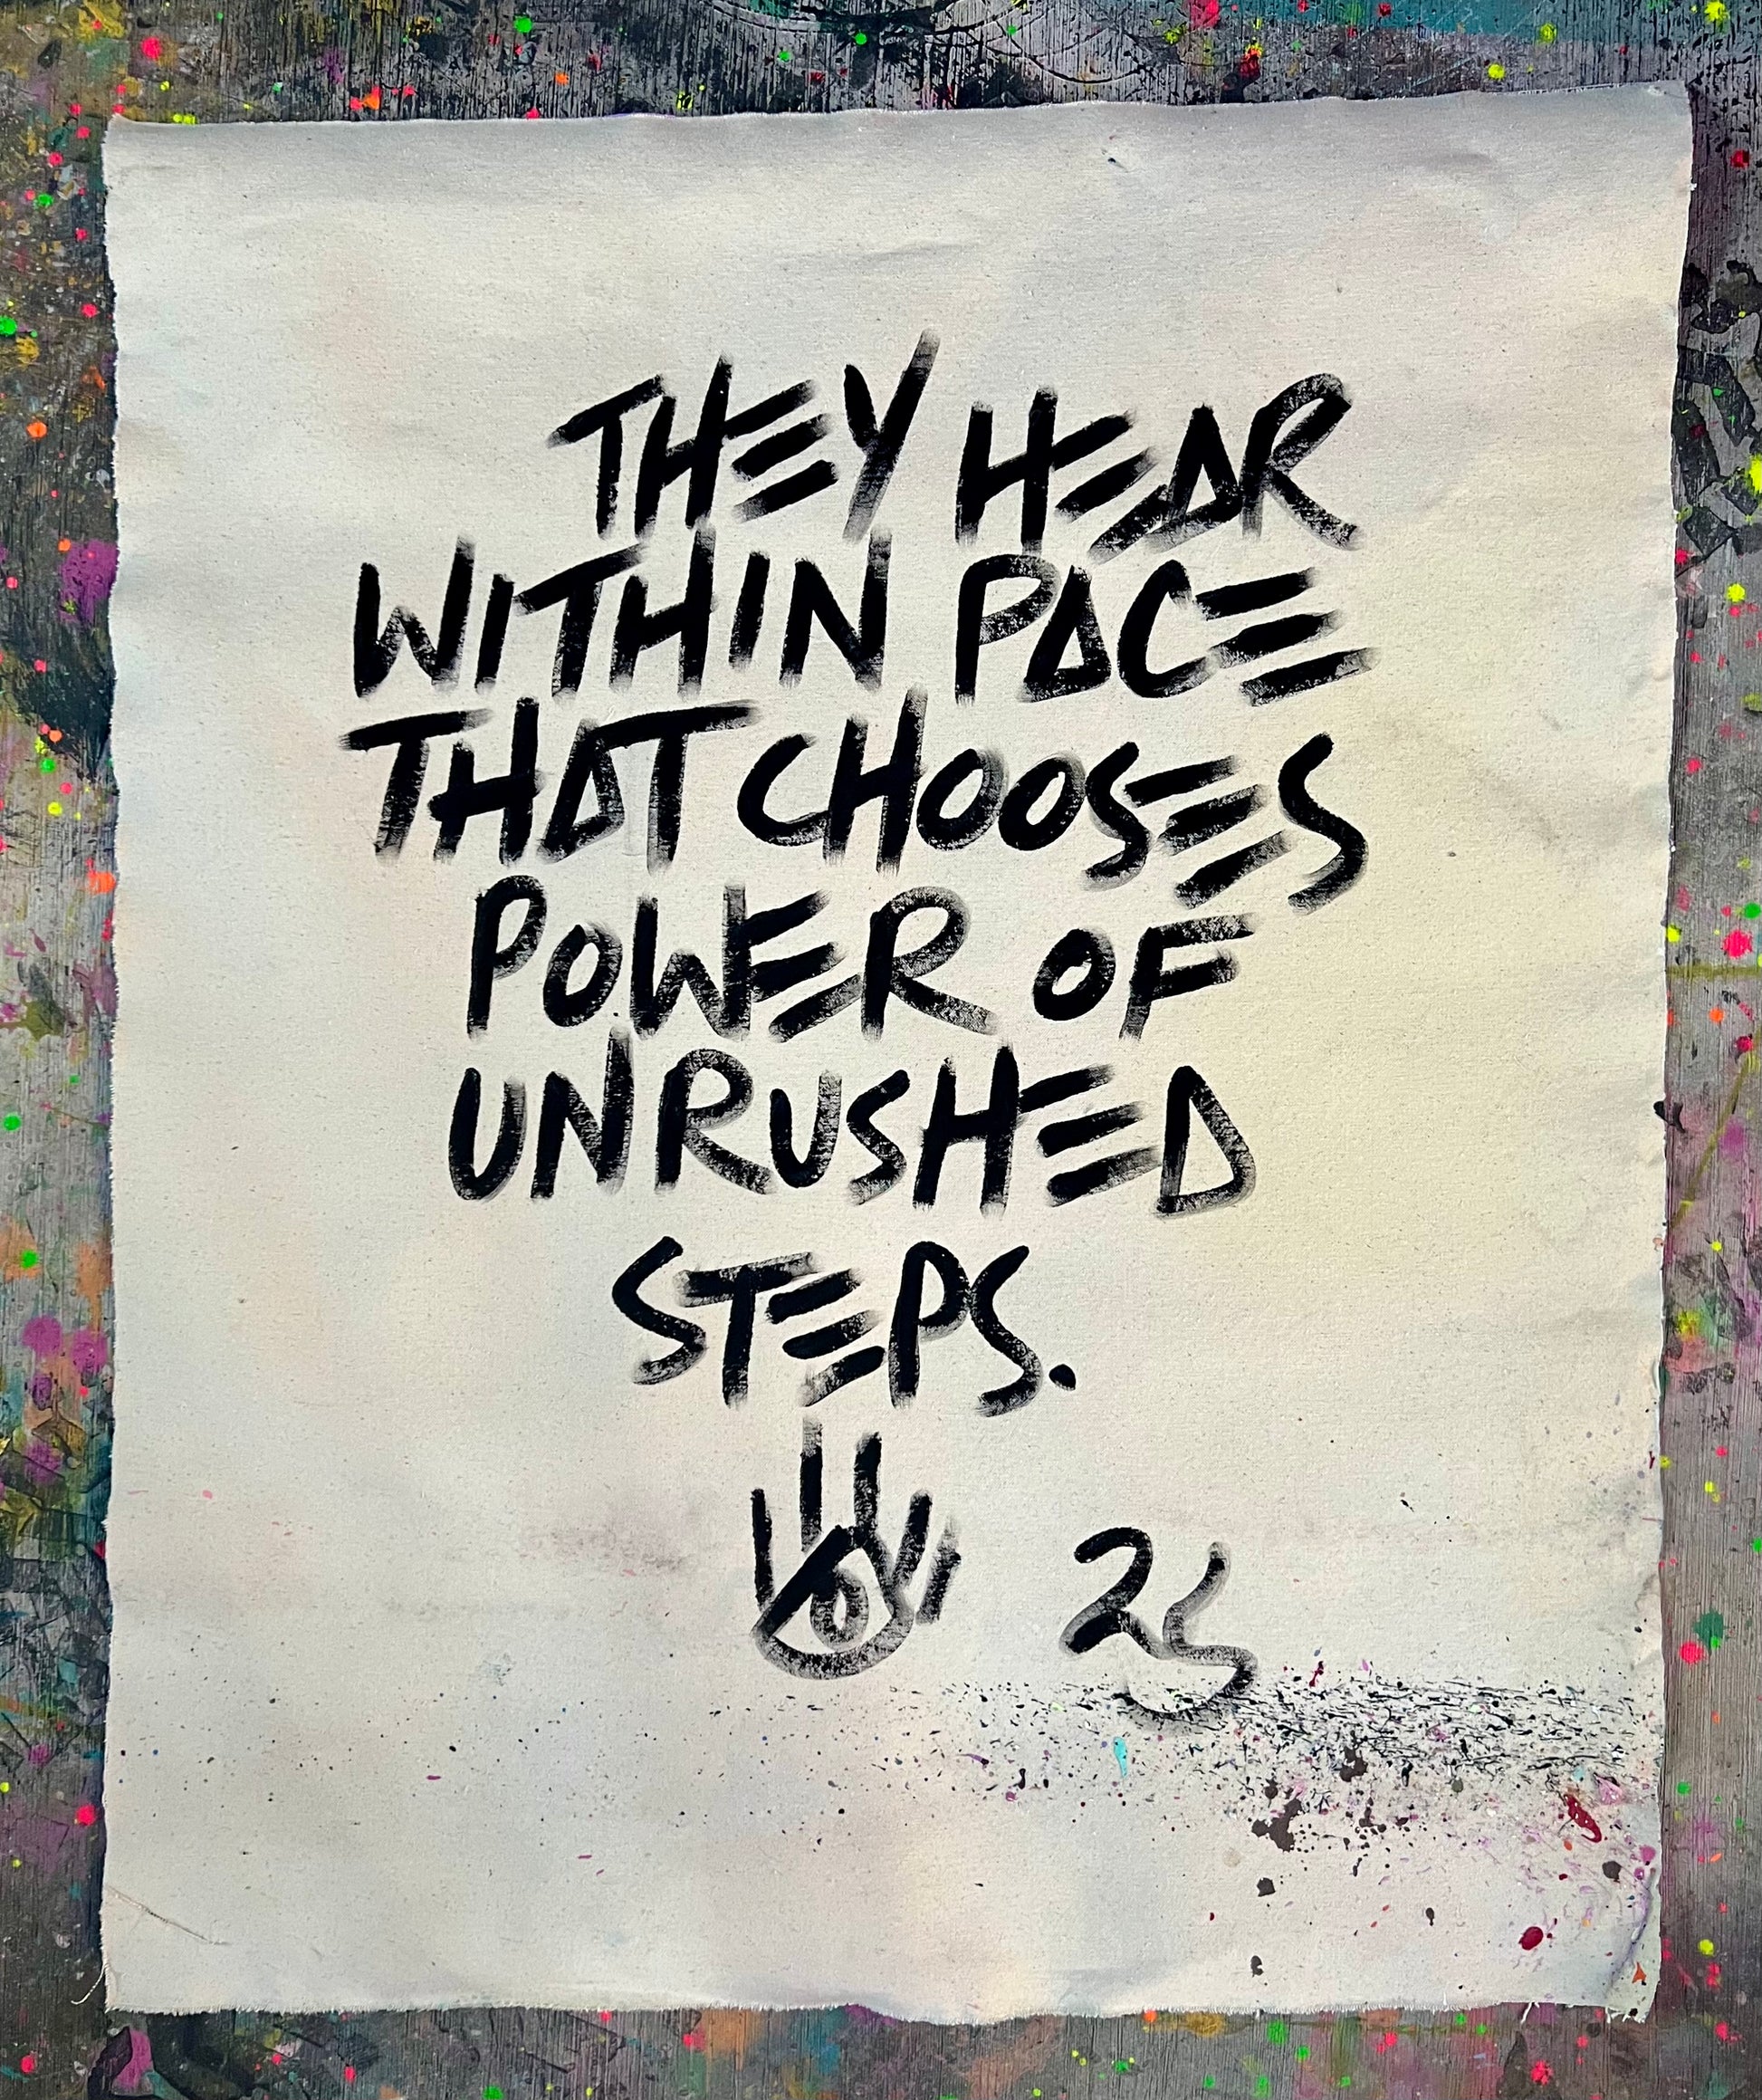 THEY HEAR
WITHIN PACE
THAT CHOOSES
POWER OF
UNRUSHED
STEPS.
25